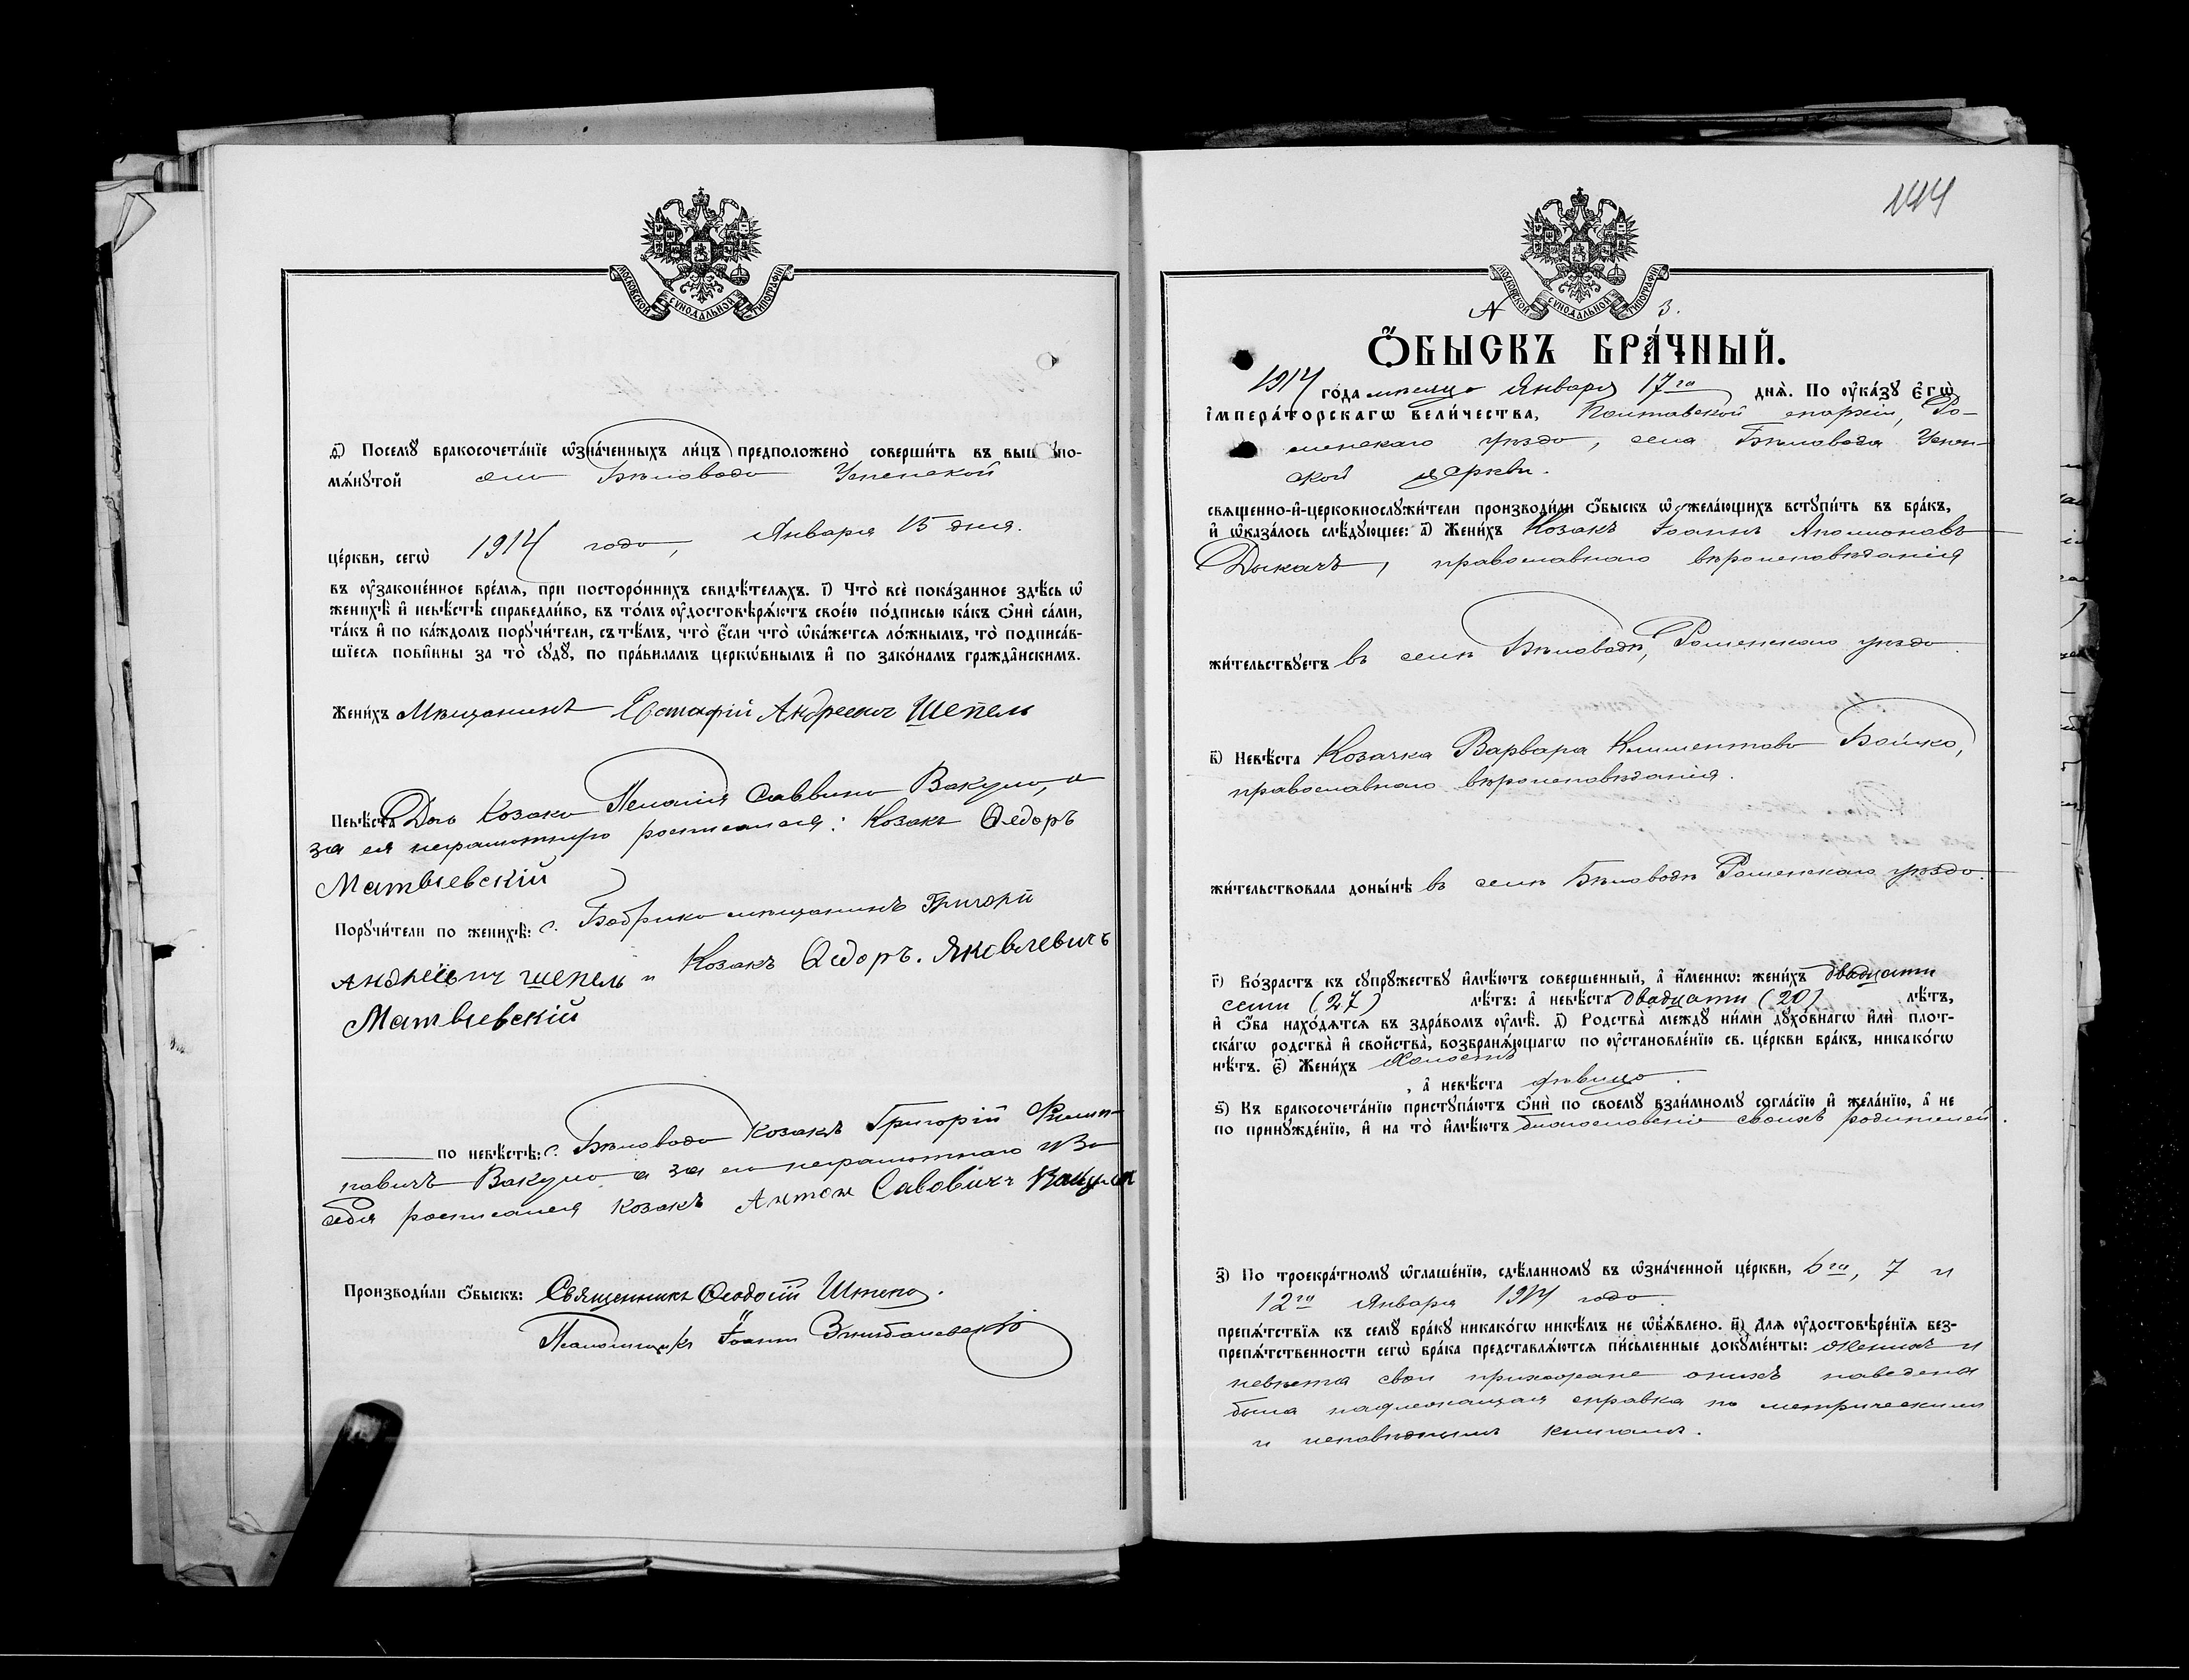 МОСКОВСКОЙ СУНОДАЛЬНОЙ ТИПОГРАФІИ
д҃) Посемꙋ̀ бракосочета́нїе ѡ҆зна́ченныхъ ли́цъ предположено̀ соверши́ть въ вышепо-
мѧ́нꙋтой села Бѣловода Успенской
це́ркви, сегѡ̀ 1914 года, Января 15 дня.
въ ᲂу҆зако́ненное вре́мѧ, при посторо́ннихъ свидѣ́телѧхъ. і҃) Что̀ всѐ пока́занное здѣ́сь ѡ҆
женихѣ̀ и҆ невѣ́стѣ справедли́во, въ то́мъ ᲂу҆достовѣрѧ́ютъ свое́ю по́дписью ка́къ ѻ҆нѝ са́ми,
та́къ и҆ по ка́ждомъ порꙋчи́тели, съ тѣ́мъ, что̀ є҆́сли что̀ ѡ҆ка́жетсѧ ло́жнымъ, то̀ подписа́в-
шїесѧ пови́нны за то̀ сꙋдꙋ̀, по пра́виламъ церкѡ́внымъ и҆ по зако́намъ гражда́нскимъ.
Жени́хъ Мѣщанинъ Естафій Андреевич Шепель
Невѣ́ста Дочь Козака Пелагія Саввина Вакула, а
за ея неграмотную росписался: Козакъ Ѳедоръ
Матвіевскій
Порꙋчи́тели по женихѣ̀: с. Бобрика мѣщанинъ Григорій
Андреевич шепель и Козакъ Ѳедоръ. Яковлевичъ
Матвіевскій
по невѣ́стѣ: с. Бѣловода козакъ Григорій Филип-
повичъ Вакула а за его неграмотнаго и за
себя росписался козакъ Антон Савовичъ Вакула
Производи́ли ѻ҆́быскъ: Священникъ Ѳеодосій
Псаломщикъ Іоаннъ
144
МОСКОВСКОЙ СУНОДАЛЬНОЙ ТИПОГРАФІИ
№ 3.
Ѻ҆́БЫСКЪ БРА́ЧНЫЙ.
1914 го́да мѣсяца Января 17го днѧ̀. По ᲂу҆ка́зꙋ Є҆гѡ̀
І҆мпера́торскагѡ вели́чества, Полтавской епархіи, Ро-
менскаго уѣзда, села Бѣловода Успен-
ской церкви.
свѧще́нно-и҆-церковнослꙋжи́тели производи́ли ѻ҆́быскъ ѡ҆ жела́ющихъ встꙋпи́ть въ бра́къ,
и҆ ѡ҆каза́лось слѣ́дꙋющее: а҃) Жени́хъ Козакъ Іоаннъ Аполлоновъ
Дыкачъ, православнаго вѣроисповѣданія
жи́тельствꙋетъ въ селѣ Бѣловодѣ, Роменскаго уѣзда.
в҃) Невѣ́ста Козачка Варвара Климентова Бойко,
православнаго вѣроисповѣданія.
жи́тельствовала доны́нѣ въ селѣ Бѣловодѣ Роменскаго уѣзда.
г҃) Во́зрастъ къ сꙋпрꙋ́жествꙋ и҆мѣ́ютъ соверше́нный, а҆ и҆́меннѡ: жени́хъ двадцати
семи (27) лѣ́тъ: а҆ невѣ́ста двадцати (20) лѣ́тъ,
и҆ ѻ҆́ба нахо́дѧтсѧ въ здра́вомъ ᲂу҆мѣ̀. д҃) Родства̀ междꙋ̀ ни́ми дꙋхо́внагѡ и҆лѝ плот-
ска́гѡ родства̀ и҆ свойства̀, возбранѧ́ющагѡ по ᲂу҆становле́нїю св. це́ркви бра́къ, никако́гѡ
нѣ́тъ. є҃) Жени́хъ холостъ
, а҆ невѣ́ста дѣвица.
ѕ҃) Къ бракосочета́нїю пристꙋпа́ютъ ѻ҆нѝ по своемꙋ̀ взаи́мномꙋ согла́сїю и҆ жела́нїю, а҆ не
по принꙋжде́нїю, и҆ на то̀ и҆мѣ́ютъ благословеніе своихъ родителей.
з҃) По троекра́тномꙋ ѡ҆глаше́нїю, сдѣ́ланномꙋ въ ѡ҆зна́ченной це́ркви, 6го, 7 и
12го Января 1914 года
препѧ́тствїѧ къ семꙋ̀ бра́кꙋ никако́гѡ никѣ́мъ не ѡ҆б̾ѧ́влено. и҃) Длѧ ᲂу҆достовѣре́нїѧ без-
препѧ́тственности сегѡ̀ бра́ка представлѧ́ютсѧ пи́сьменные докꙋме́нты: Женихъ и
невѣста свои прихожане о нихъ наведена
была надлежащая справка по метрическимъ
и исповѣднымъ книгамъ.